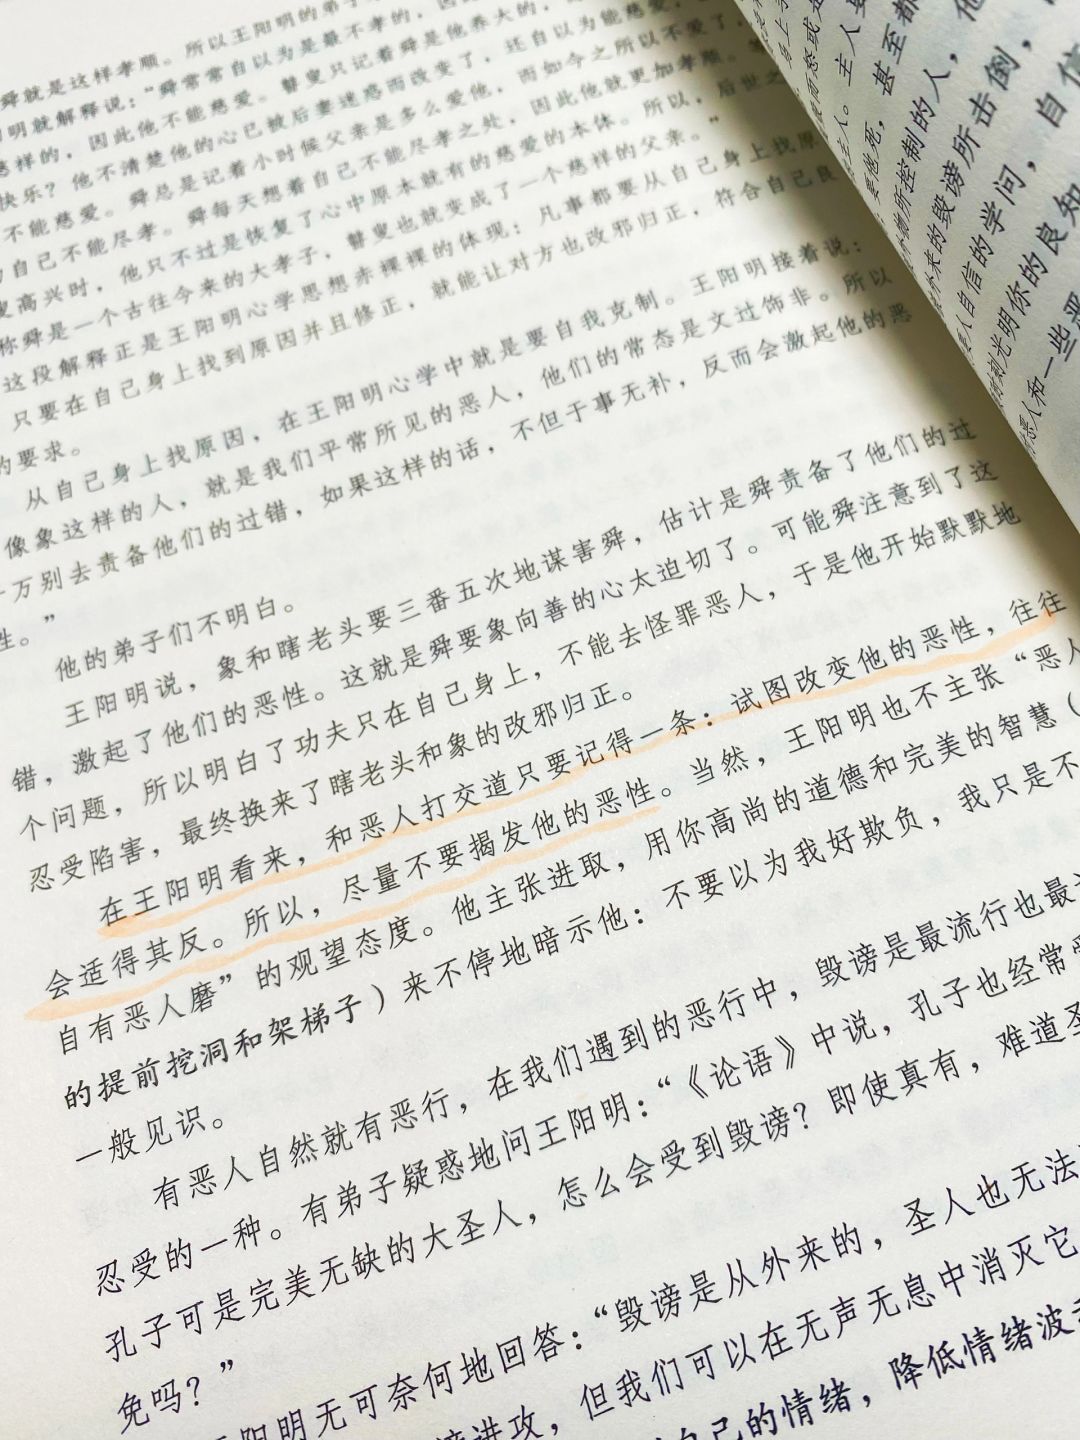 舜就是这样孝顺。所以王阳明的弟子
明就解释说：“舜常常自以为是最不孝的，因此
慈祥的，因此他不能慈爱。瞽叟只记着舜是他养大的，
快乐？他不清楚他的心已被后妻迷惑而改变了，还自以为能慈爱，
不能慈爱。舜总是记着小时候父亲是多么爱他，而如今之所以不爱了，
自己不能尽孝。舜每天想着自己不能尽孝之处，因此他就更加孝顺。
叟高兴时，他只不过是恢复了心中原本就有的慈爱的本体。所以，后世之
称舜是一个古往今来的大孝子，瞽叟也就变成了一个慈祥的父亲。”
这段解释正是王阳明心学思想赤裸裸的体现：凡事都要从自己身上找原
只要在自己身上找到原因并且修正，就能让对方也改邪归正，符合自己良
的要求。
从自己身上找原因，在王阳明心学中就是要自我克制。王阳明接着说：
像象这样的人，就是我们平常所见的恶人，他们的常态是文过饰非。所以
万别去责备他们的过错，如果这样的话，不但于事无补，反而会激起他的恶
性。”
他的弟子们不明白。
王阳明说，象和瞎老头要三番五次地谋害舜，估计是舜责备了他们的过
错，激起了他们的恶性。这就是舜要象向善的心太迫切了。可能舜注意到了这
个问题，所以明白了功夫只在自己身上，不能去怪罪恶人，于是他开始默默地
忍受陷害，最终换来了瞎老头和象的改邪归正。
在王阳明看来，和恶人打交道只要记得一条：试图改变他的恶性，往往
会适得其反。所以，尽量不要揭发他的恶性。当然，王阳明也不主张“恶人
自有恶人磨”的观望态度。他主张进取，用你高尚的道德和完美的智慧（
的提前挖洞和架梯子）来不停地暗示他：不要以为我好欺负，我只是不
一般见识。
有恶人自然就有恶行，在我们遇到的恶行中，毁谤是最流行也最
忍受的一种。有弟子疑惑地问王阳明：“《论语》中说，孔子也经常受
孔子可是完美无缺的大圣人，怎么会受到毁谤？即使真有，难道圣
免吗？”
阳明无可奈何地回答：“毁谤是从外来的，圣人也无法
进攻，但我们可以在无声无息中消灭它
自己的情绪，降低情绪波
主人。主人要
要他死，甚至都
物所控制的人，他
外来的毁谤所击倒，
人自信的学问，自信
光明你的良知
恶人和一些恶